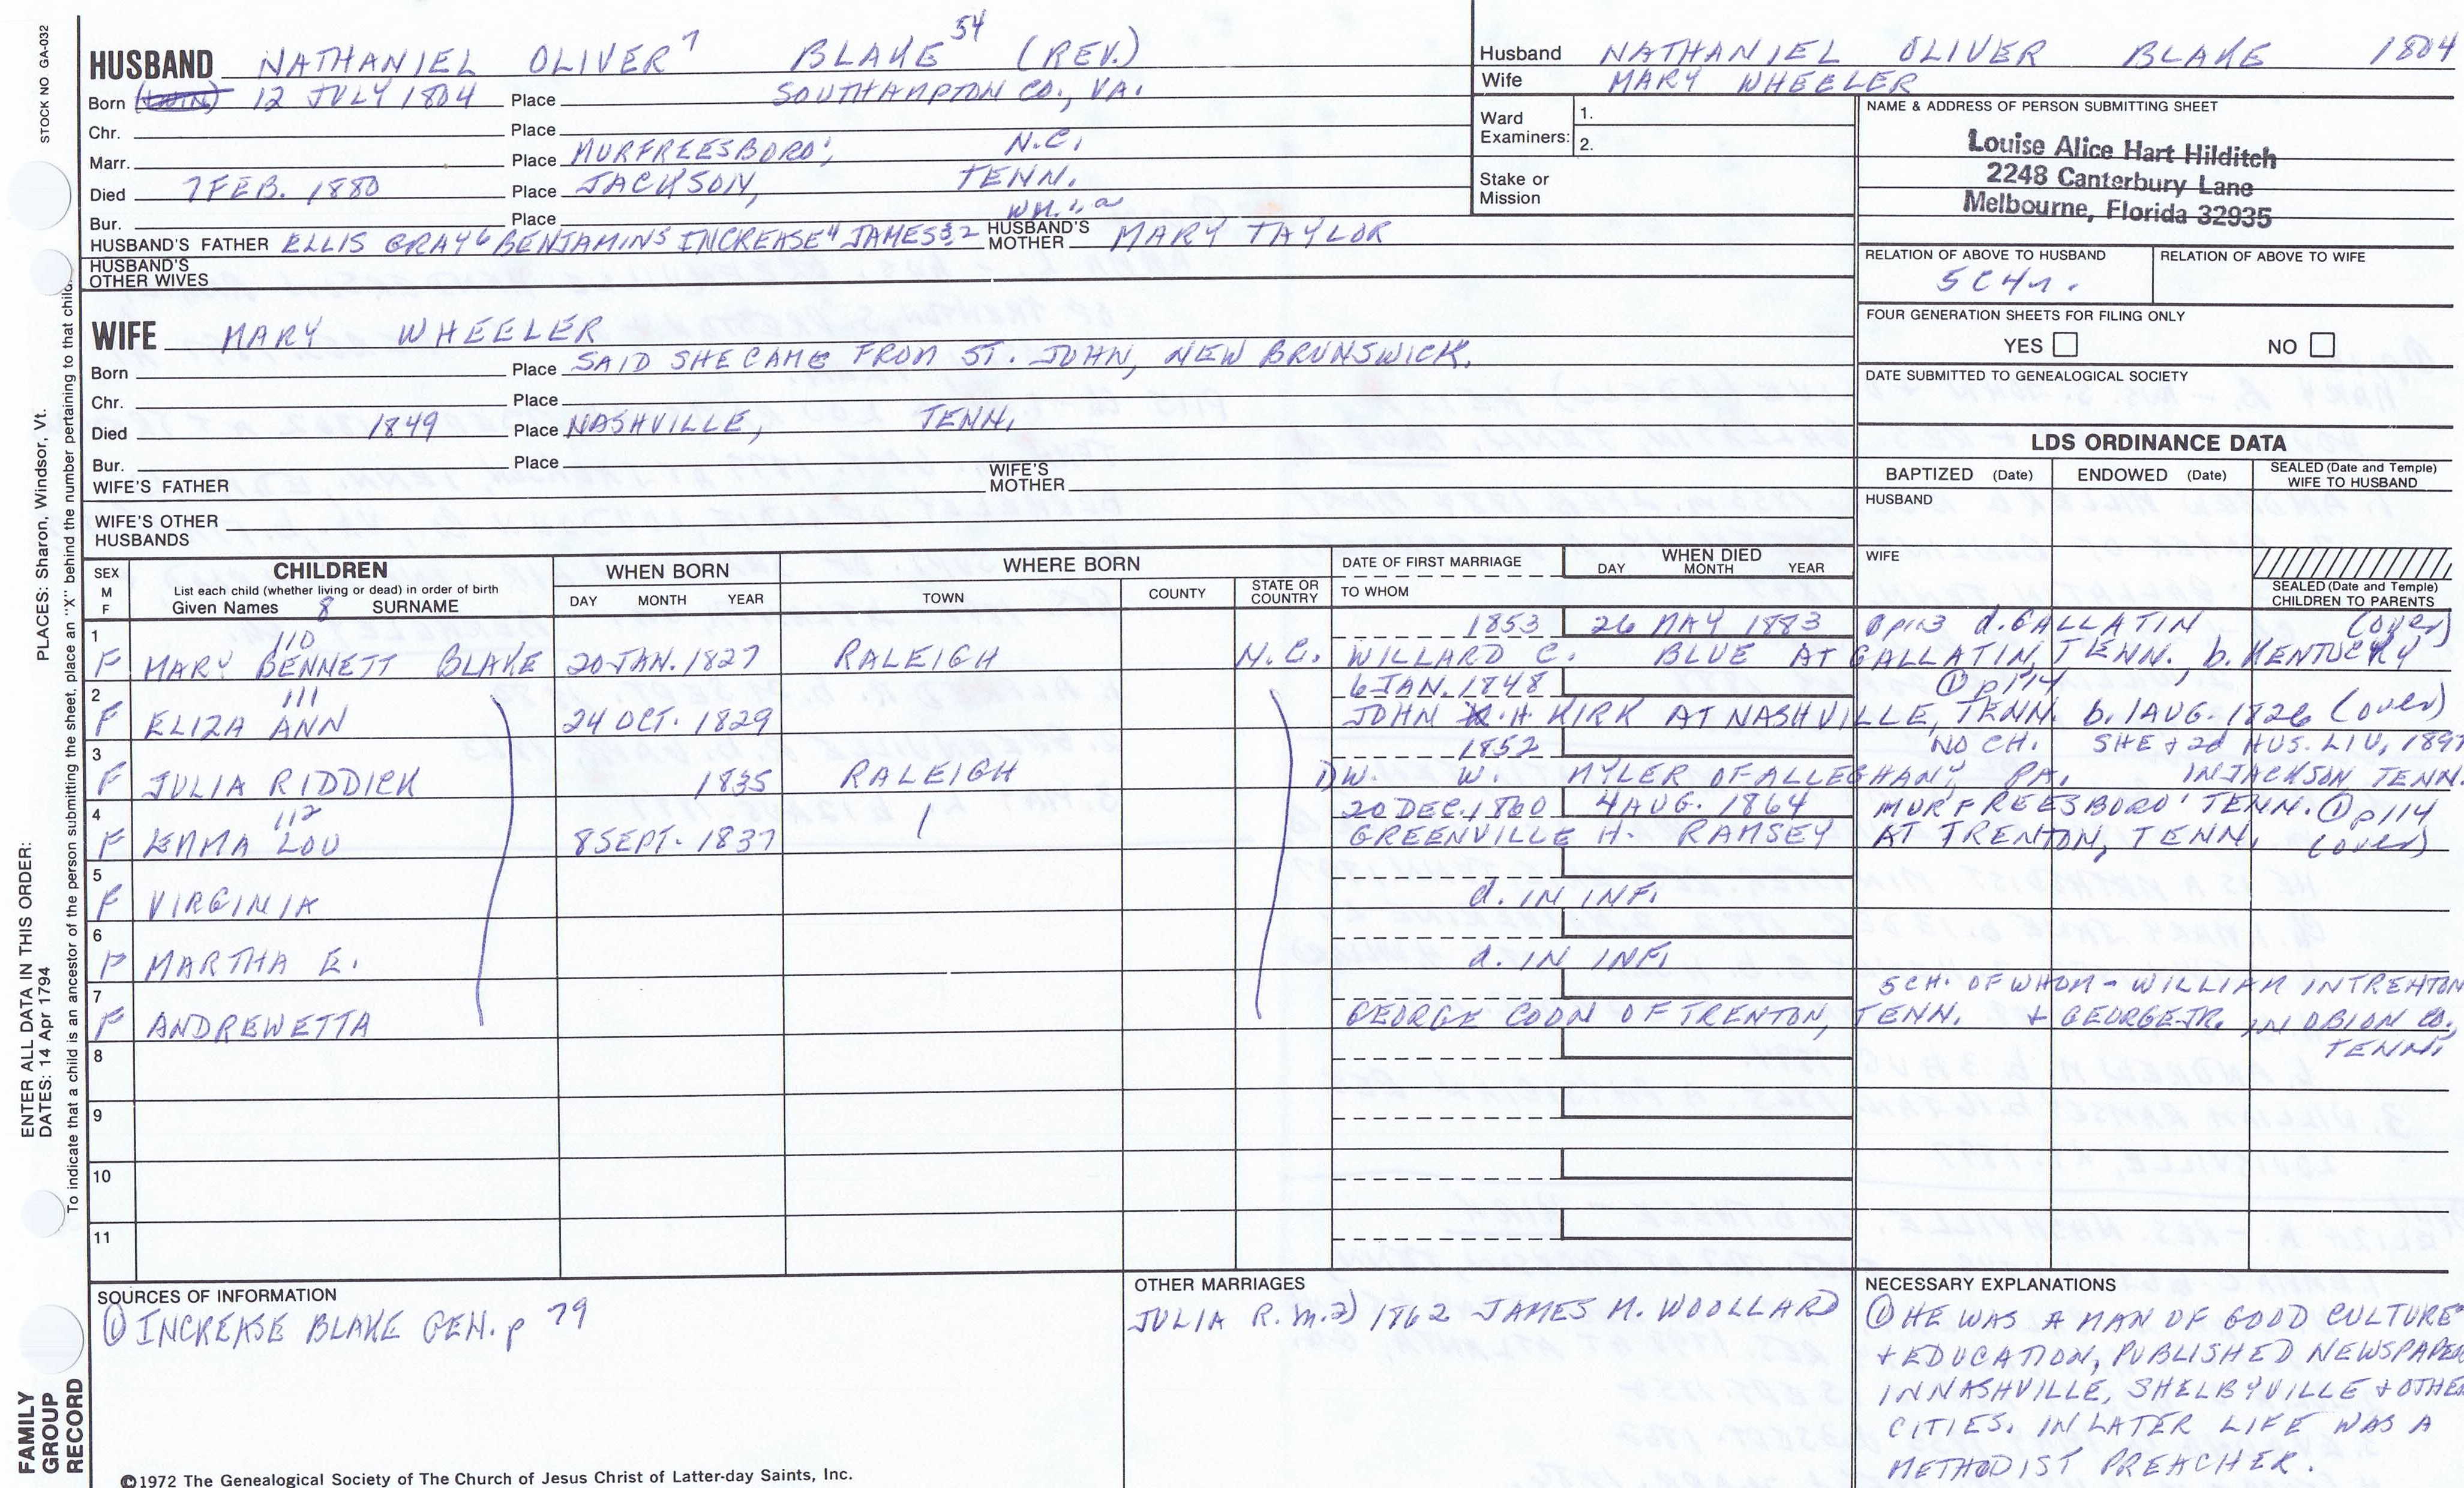 STOCK NO GA-032
PLACES: Sharon, Windsor, Vt.
ENTER ALL DATA IN THIS ORDER:
DATES: 14 Apr 1794
To indicate that a child is an ancestor of the person submitting the sheet, place an "X" behind the number pertaining to that child.
FAMILY GROUP RECORD
HUSBAND NATHANIEL OLIVER 7 BLAKE 54 (REV.)
Born 12 JULY 1804 Place SOUTHAMPTON CO., VA.
Chr. Place
Marr. Place MURFREESBORO', N.C.
Died 7 FEB. 1880 Place JACKSON, TENN.
Bur. Place
HUSBAND'S FATHER ELLIS GRAY 6 BENJAMIN 5 INCREASE 4 JAMES 3,2 HUSBAND'S MOTHER MARY TAYLOR
HUSBAND'S OTHER WIVES
WIFE MARY WHEELER
Born Place SAID SHE CAME FROM ST. JOHN, NEW BRUNSWICK.
Chr. Place
Died 1849 Place NASHVILLE, TENN.
Bur. Place
WIFE'S FATHER WIFE'S MOTHER
WIFE'S OTHER HUSBANDS
Husband NATHANIEL OLIVER BLAKE 1804
Wife MARY WHEELER
Ward Examiners: 1.
2.
Stake or Mission
NAME & ADDRESS OF PERSON SUBMITTING SHEET
Louise Alice Hart Hilditch
2248 Canterbury Lane
Melbourne, Florida 32935
RELATION OF ABOVE TO HUSBAND RELATION OF ABOVE TO WIFE
5C4r.
FOUR GENERATION SHEETS FOR FILING ONLY
YES NO
DATE SUBMITTED TO GENEALOGICAL SOCIETY
LDS ORDINANCE DATA
BAPTIZED (Date) ENDOWED (Date) SEALED (Date and Temple) WIFE TO HUSBAND
HUSBAND
WIFE
SEALED (Date and Temple) CHILDREN TO PARENTS
SEX M F
CHILDREN
List each child (whether living or dead) in order of birth
Given Names 8 SURNAME
WHEN BORN
DAY MONTH YEAR
WHERE BORN
TOWN COUNTY STATE OR COUNTRY
DATE OF FIRST MARRIAGE
TO WHOM
WHEN DIED
DAY MONTH YEAR
1 110 1853 26 MAY 1883 p113 d. GALLATIN (over)
F MARY BENNETT BLAKE 20 JAN. 1827 RALEIGH N.C. WILLARD C. BLUE AT GALLATIN, TENN. b. KENTUCKY
2 111 6 JAN. 1848 ① p114
F ELIZA ANN 24 OCT. 1829 JOHN H. KIRK AT NASHVILLE, TENN. b. 1 AUG. 1826 (over)
3 1852 NO CH. SHE + 2d HUS. LIV. 1897
F JULIA RIDDICK 1835 RALEIGH 1) W. W. MYLER OF ALLEGHANY, PA. IN JACKSON TENN.
4 112 20 DEC. 1860 4 AUG. 1864 MURFREESBORO' TENN. ① p114
F EMMA LOU 8 SEPT. 1837 GREENVILLE H. RAMSEY AT TRENTON, TENN. (over)
5
F VIRGINIA d. IN INF.
6
F MARTHA E. d. IN INF.
7 5 CH. OF WHOM - WILLIAM IN TRENTON
F ANDREWETTA GEORGE COON OF TRENTON, TENN. + GEORGE JR. IN OBION CO., TENN.
8
9
10
11
SOURCES OF INFORMATION
① INCREASE BLAKE GEN. p 79
OTHER MARRIAGES
JULIA R. m. 2) 1862 JAMES M. WOOLLARD
NECESSARY EXPLANATIONS
① HE WAS A MAN OF GOOD CULTURE
+ EDUCATION, PUBLISHED NEWSPAPER
IN NASHVILLE, SHELBYVILLE + OTHE
CITIES. IN LATER LIFE WAS A
METHODIST PREACHER.
©1972 The Genealogical Society of The Church of Jesus Christ of Latter-day Saints, Inc.